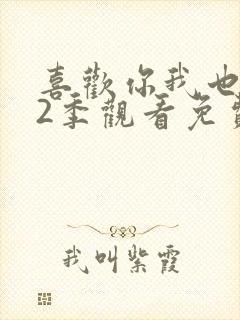 喜歡你我也
2季觀看免費
我叫紫霞